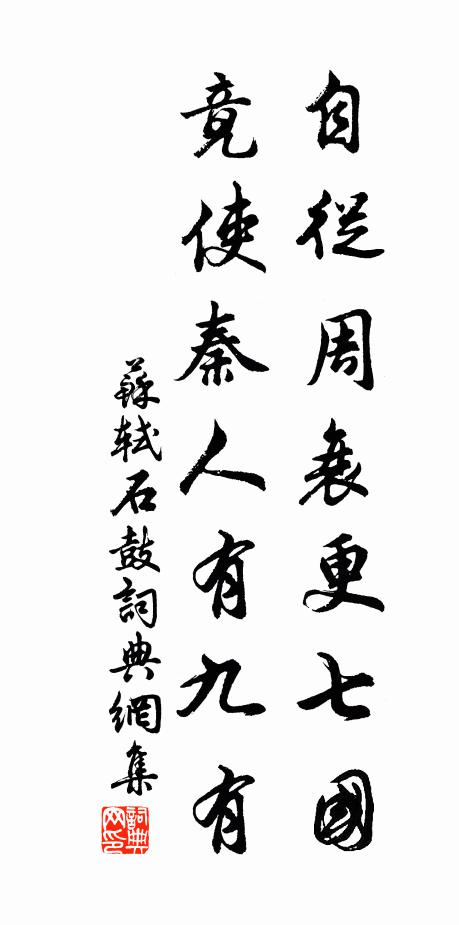 自從周衰更七國
竟使秦人有九有
蘇軾石鼓詞典網集
詞典網印